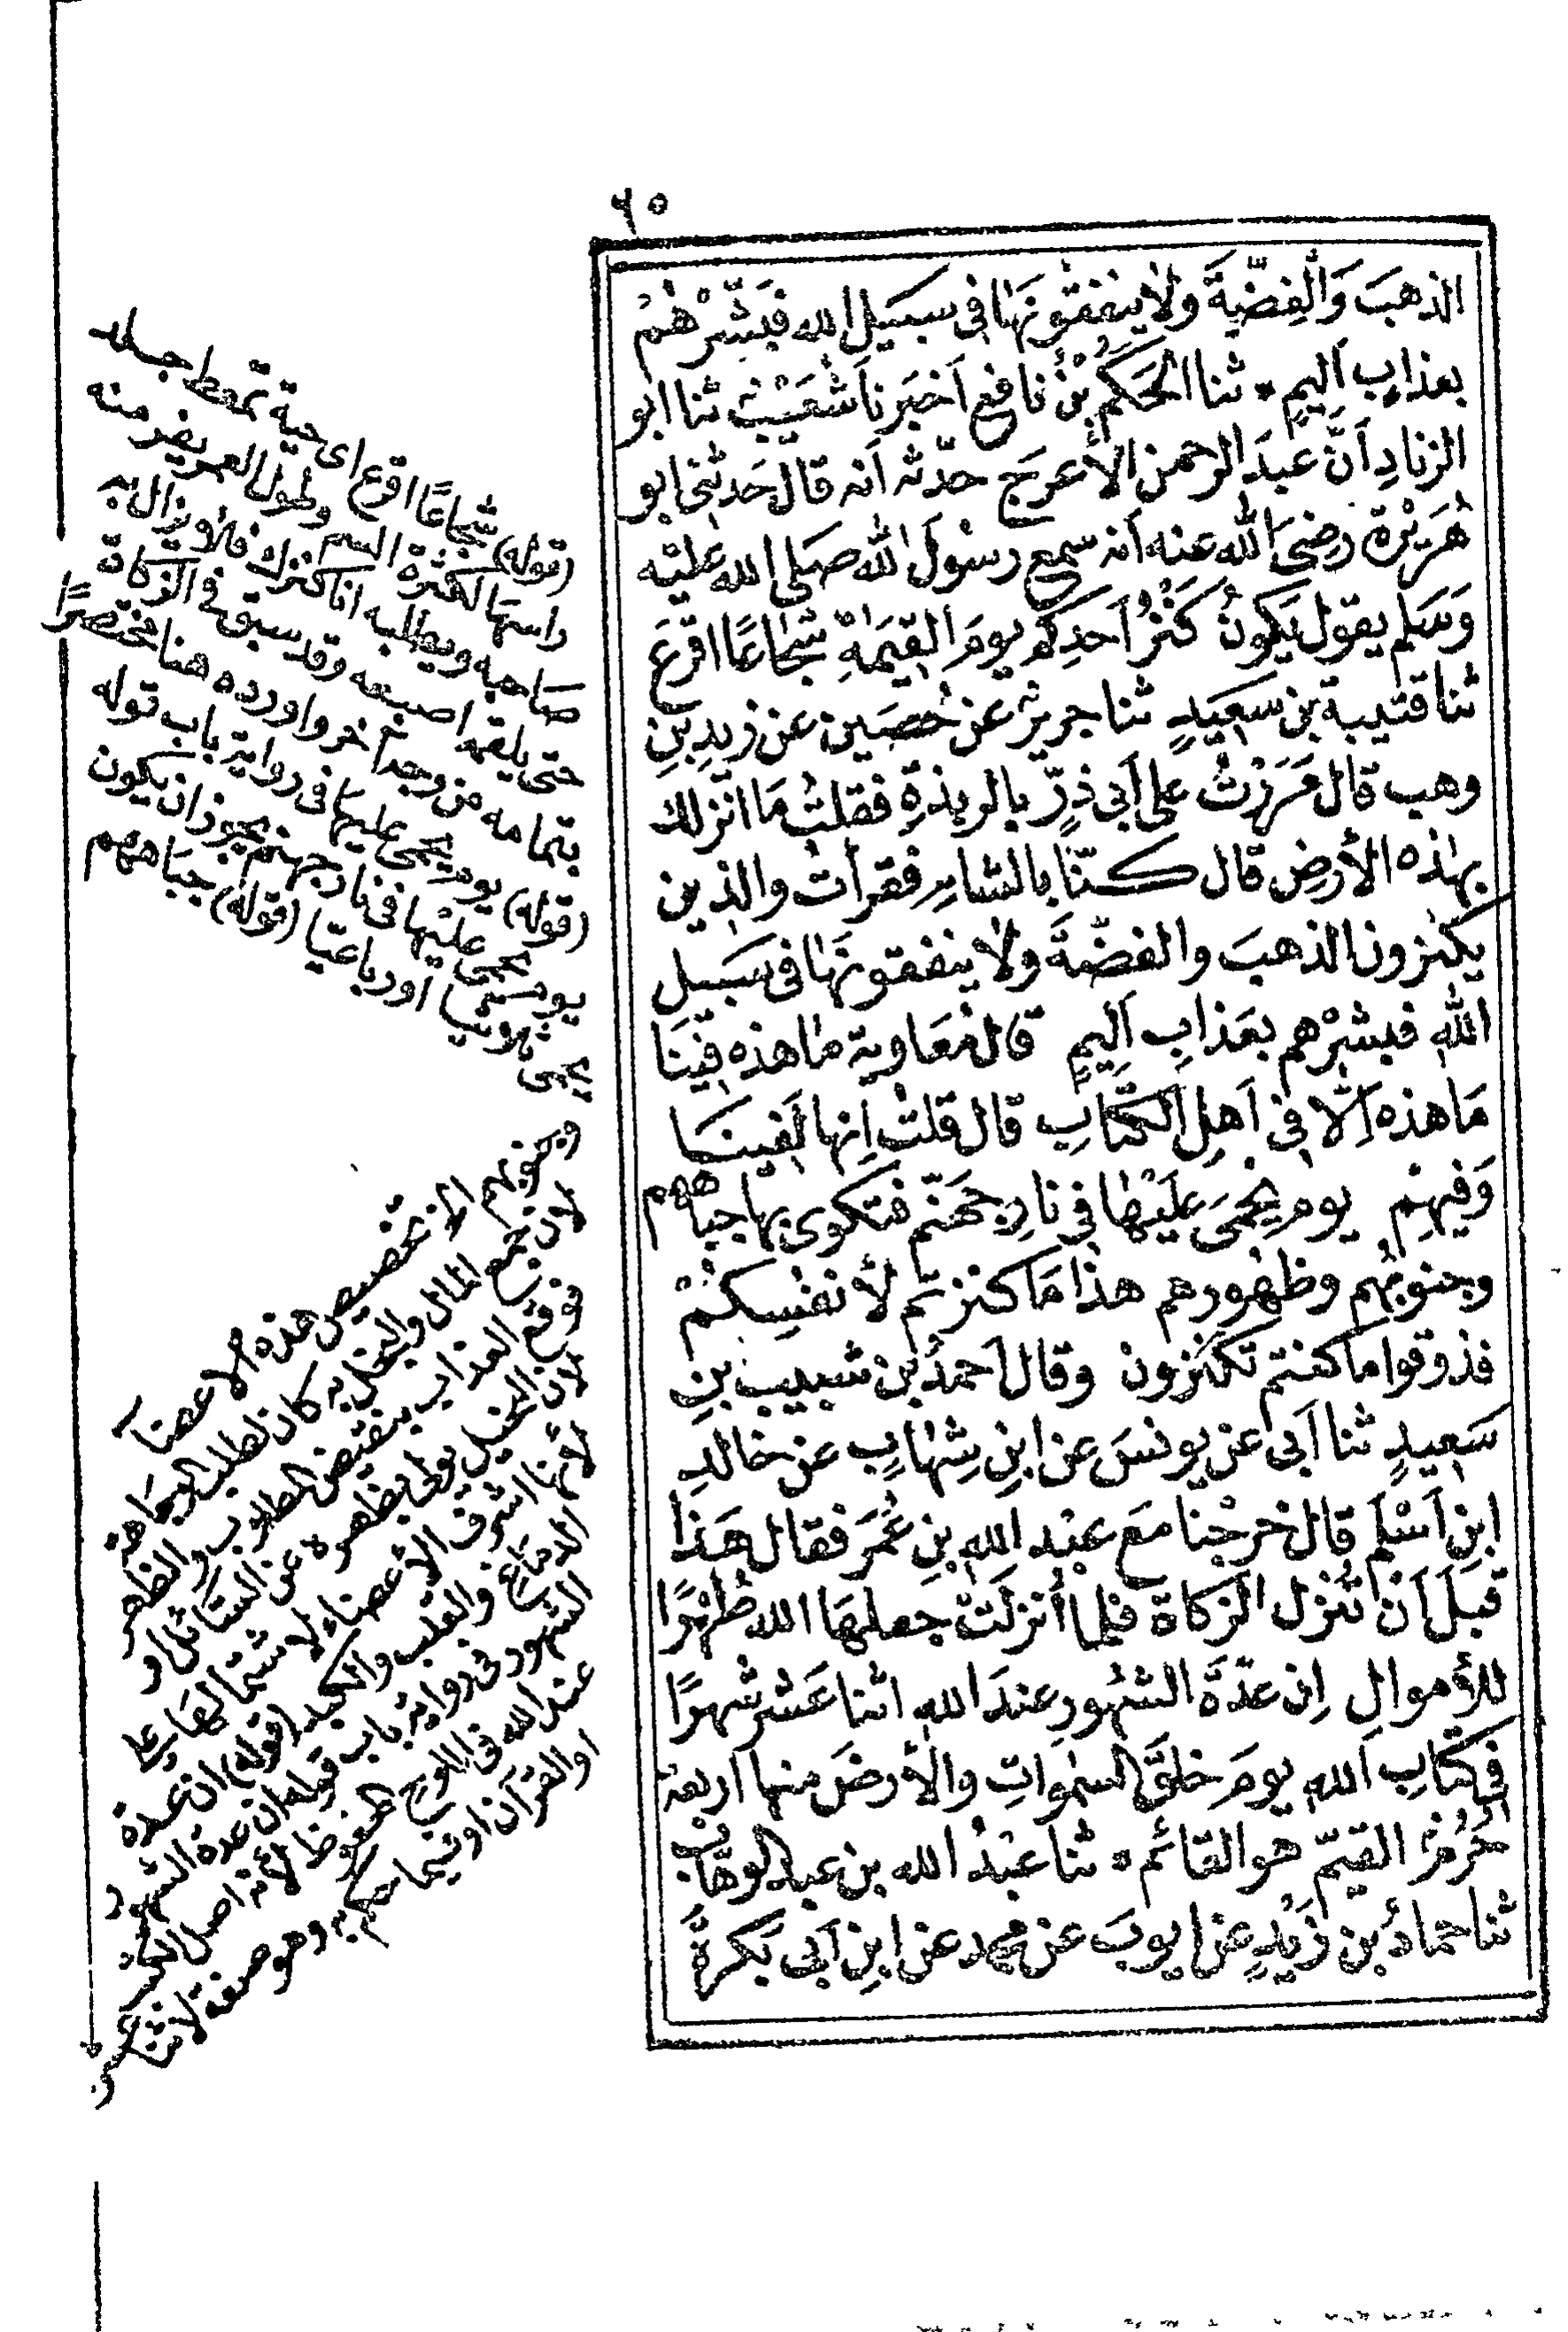 ٦٥
الذهبَ وَالْفِضَّةَ ولا ينفقونَهَا فى سَبَيِل الله فَبَشِّرْهُمْ
بعذابٍ اَليمٍ * ثنا الحَكَمُ بْنُ نافعٍ اَخبَرنا شُعَيْبٌ ثنا ابو
الزنادِ اَنَّ عبدَ الرحمن الأعرَجَ حدّثه اَنه قال حَدثنى ابو
هُرَيْرة رضىَ الله عنه اَنه سمِع رسُولَ الله صَلى الله عَليْه
وَسَلم يقول يَكونُ كَنْزُ اَحدِكم يومَ القيَمةِ شُجَاعًا اقرَعَ
ثنا قتيبة بن سَعِيدٍ ثنا جرير عن حُصَين عن زيدِ بنِ
وهب قال مَرَرْتُ على اَبى ذرّ بالربذةِ فقلتُ مَا انزلك
بهذه الأرضِ قال كنّا بالشامِ فقرأت والذين
يكنزون الذهبَ والفضّةَ ولا ينفقونَها فى سَبيل
الله فبشرْهم بعَذابِ اَليِمٍ قال مُعَاوية ما هذه فِينَا
مَا هذه اِلَّا فى اَهِل الكتابِ قال قلتُ اِنها لَفينا
وَفيهِمْ يوم يُحْمىَ عَلَيْهَا فى نارِ جَهَنّم فتكوى بها جباههم
وجنوبُهُم وظهُورهم هذا مَا كنزتم لأنفُسِكُمْ
فذوقوا ما كنتم تكنزون وقال اَحمدُ بن شبيب بنِ
سَعِيدٍ ثنا اَبى عن يونسَ عن ابنِ شِهابٍ عن خالدِ
ابنِ اَسْلمَ قال خرجْنا مَع عبْد اللهِ بنِ عُمَرَ فقال هَذا
قبلَ اَن تُنزل الزكاة فلما أُنزلَتْ جعلهَا الله طُهْرًا
للأموالِ اِن عدّةَ الشهُورِ عندَ الله اثنا عَشر شهرًا
فى كتابِ الله يومَ خلقَ السموَاتِ والأرضَ منها اربعة
حُرُمٌ القيّم هو القائم * ثنا عَبْدُ الله بن عبد الوهّاب
ثنا حمادُ بن زَيْدٍ عن ايوبَ عن محمد عن ابنِ اَبى بَكرةَ
(قوله) شجاعًا اقرع اى حية تمعط جلد
راسها لكثرة السم وطول العمر يفر منه
صاحبه ويطلبه انا كنزك فلا يزال به
حتى يلقمه اصبعه وقد سبق فى الزكاة
بتمامه من وجه اخر واورده هنا مختصرًا
(قوله) يوم يحمى عليها فى رواية باب قوله
يوم يحمى عليها فى نار جهنم يجوز ان يكون
يحمى ثلاثيا اورباعيّا (قوله) جبَاههم
وجنوبهم الخ تخصيص هذه الأعضآ
لان جمع المال والبخل به كان لطلب الوجاهة
فوقع العذاب بنقيض المطلوب والظهر
لان البخيل يولى ظهره عن السّائل او
لأنها اشرف الأعضاء لاشتمالها على
الدماغ والقلب والكبد (قوله) ان عدة
الشهور فى رواية باب قوله ان عدة الشهور
عند الله فى اللوح المحفوظ لأنه اصل الكتب
او القرآن او فيما حكم به وهو صفة لاثنا عشر